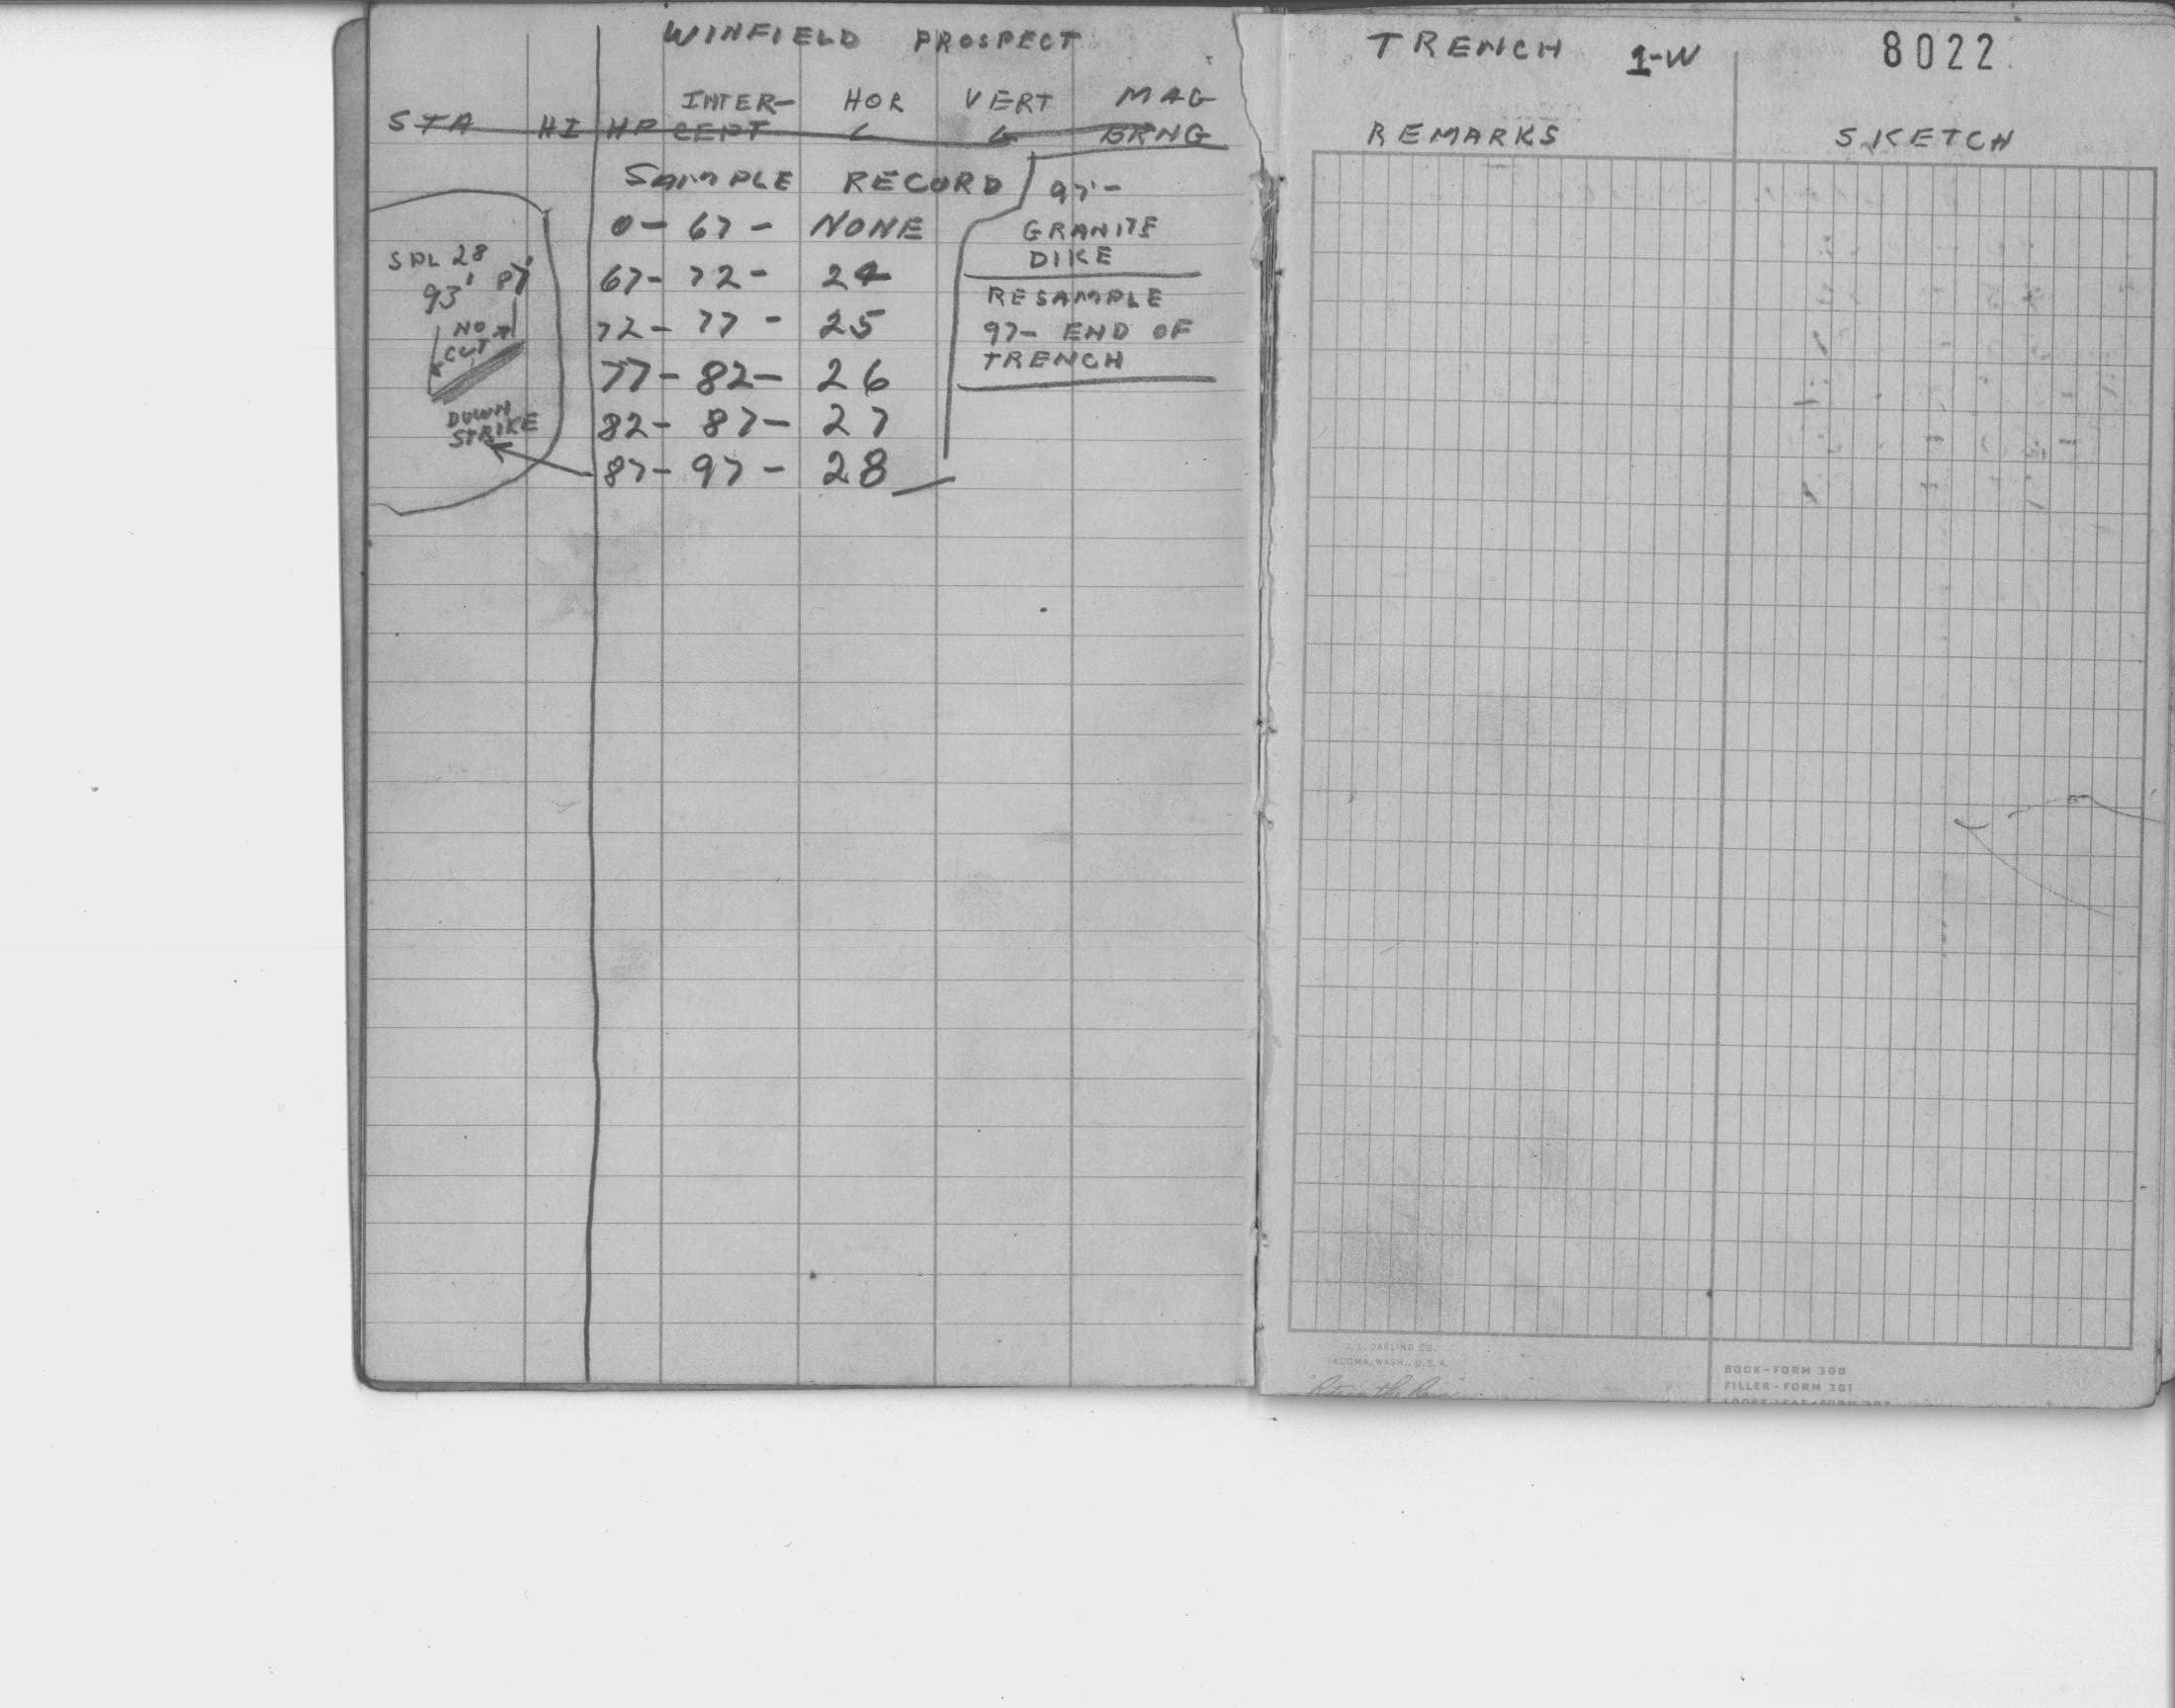 WINFIELD PROSPECT
STA HI HP INTER-CEPT HOR ∠ VERT ∠ MAG BRNG
SAMPLE RECORD
0 - 67 - NONE
67 - 72 - 24
72 - 77 - 25
77 - 82 - 26
82 - 87 - 27
87 - 97 - 28
SPL 28
93' 87'
NO
CUT
DOWN
STRIKE
97' -
GRANITE
DIKE
RESAMPLE
97 - END OF
TRENCH
TRENCH 1-W 8022
REMARKS SKETCH
J. L. DARLING CO.
TACOMA, WASH., U.S.A.
BOOK-FORM 300
FILLER-FORM 301